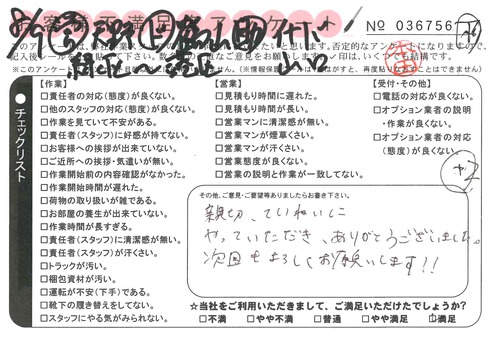 お客様不満足アンケート
No 036756
記入後シールを
(※このアンケー
(※情報保護シールははがすと、再度貼り
とはできません)
チェックリスト
【作業】
□責任者の対応(態度)が良くない。
□他のスタッフの対応(態度)が良くない。
□作業を見ていて不安がある。
□責任者(スタッフ)に好感が持てない。
□お客様への挨拶が出来ていない。
□ご近所への挨拶・気遣いが無い。
□作業開始前の内容確認がなかった。
□作業開始時間が遅れた。
□荷物の取り扱いが雑である。
□お部屋の養生が出来ていない。
□作業時間が長すぎる。
□責任者(スタッフ)に清潔感が無い。
□責任者(スタッフ)が汗くさい。
□トラックが汚い。
□梱包資材が汚い。
□運転が不安(下手)である。
□靴下の履き替えをしてない。
□スタッフにやる気がみられない。
【営業】
□見積もり時間に遅れた。
□見積もり時間が長い。
□営業マンに清潔感が無い。
□営業マンが煙草くさい。
□営業マンが汗くさい。
□営業態度が良くない。
□営業の説明と作業が一致してない。
【受付・その他】
□電話の対応が良くない。
□オプション業者の説明
・作業が良くない。
□オプション業者の対応
(態度)が良くない。
その他、ご意見・ご要望等ありましたらお書き下さい。
親切、ていねいに
やっていただき、ありがとうございました。
次回もよろしくお願いします!!
☆当社をご利用いただきまして、ご満足いただけたでしょうか?
□不満 □やや不満 □普通 □やや満足 □満足